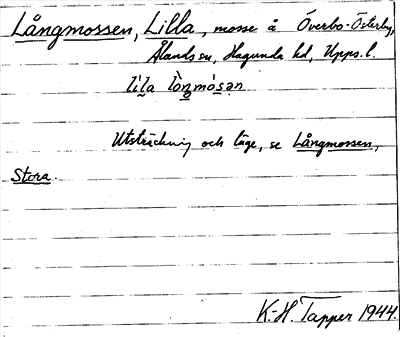 Långmossen, Lilla, mosse å Överbo-Österby,
Ålands sn, Hagunda hd, Upps. l.
lila lòŋmósan
Utsträckning och läge, se Långmossen,
Stora.
K.-H. Tapper 1944.